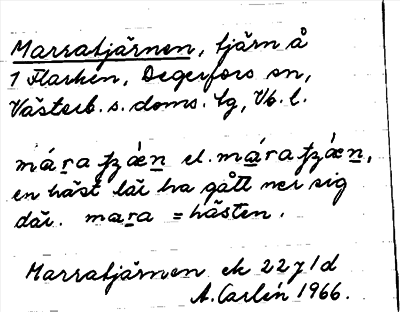 Marratjärnen, tjärn å
1 Flarken, Degerfors sn,
Västerb. s. doms. lg, Vb. l.
mára ʃzǽn el. mára ʃzǽn,
en häst lär ha gått ner sig
där. mara = hästen.
Marratjärnen ek 22 y 1 d
A. Carlén 1966.